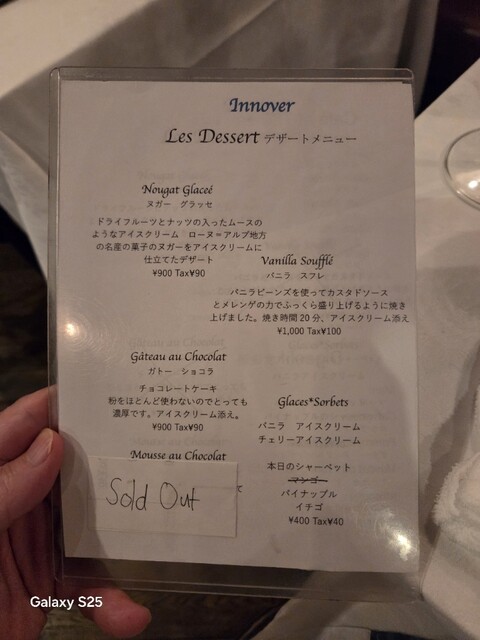 Innover
Les Dessert デザートメニュー
Nougat Glaceé
ヌガー グラッセ
ドライフルーツとナッツの入ったムースの
ようなアイスクリーム ローヌ=アルプ地方
の名産の菓子のヌガーをアイスクリームに
仕立てたデザート
¥900 Tax¥90
Vanilla Soufflé
バニラ スフレ
バニラビーンズを使ってカスタドソース
とメレンゲの力でふっくら盛り上げるように焼き
上げました。焼き時間20分、アイスクリーム添え
¥1,000 Tax¥100
Gâteau au Chocolat
ガトー ショコラ
チョコレートケーキ
粉をほとんど使わないのでとっても
濃厚です。アイスクリーム添え。
¥900 Tax¥90
Glaces*Sorbets
バニラ アイスクリーム
チェリーアイスクリーム
本日のシャーベット
マンゴー
パイナップル
イチゴ
¥400 Tax¥40
Mousse au Chocolat
Sold Out
て
Galaxy S25